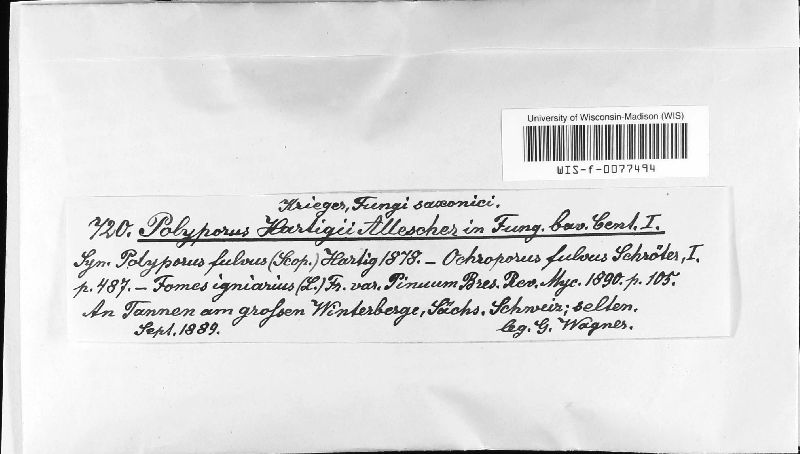 University of Wisconsin-Madison (WIS)
WIS-f-0077494
Krieger, Fungi saxonici.
720. Polyporus Hartigii Allescher in Fung. bav. Cent. I.
Syn. Polyporus fulvus (Scop.) Hartig 1878. – Ochroporus fulvus Schröter, I.
p. 487. – Fomes igniarius (L.) Fr. var. Pinuum Bres. Rev. Myc. 1890. p. 105.
An Tannen am grossen Winterberge, Sächs. Schweiz; selten.
Sept. 1889. leg. G. Wagner.